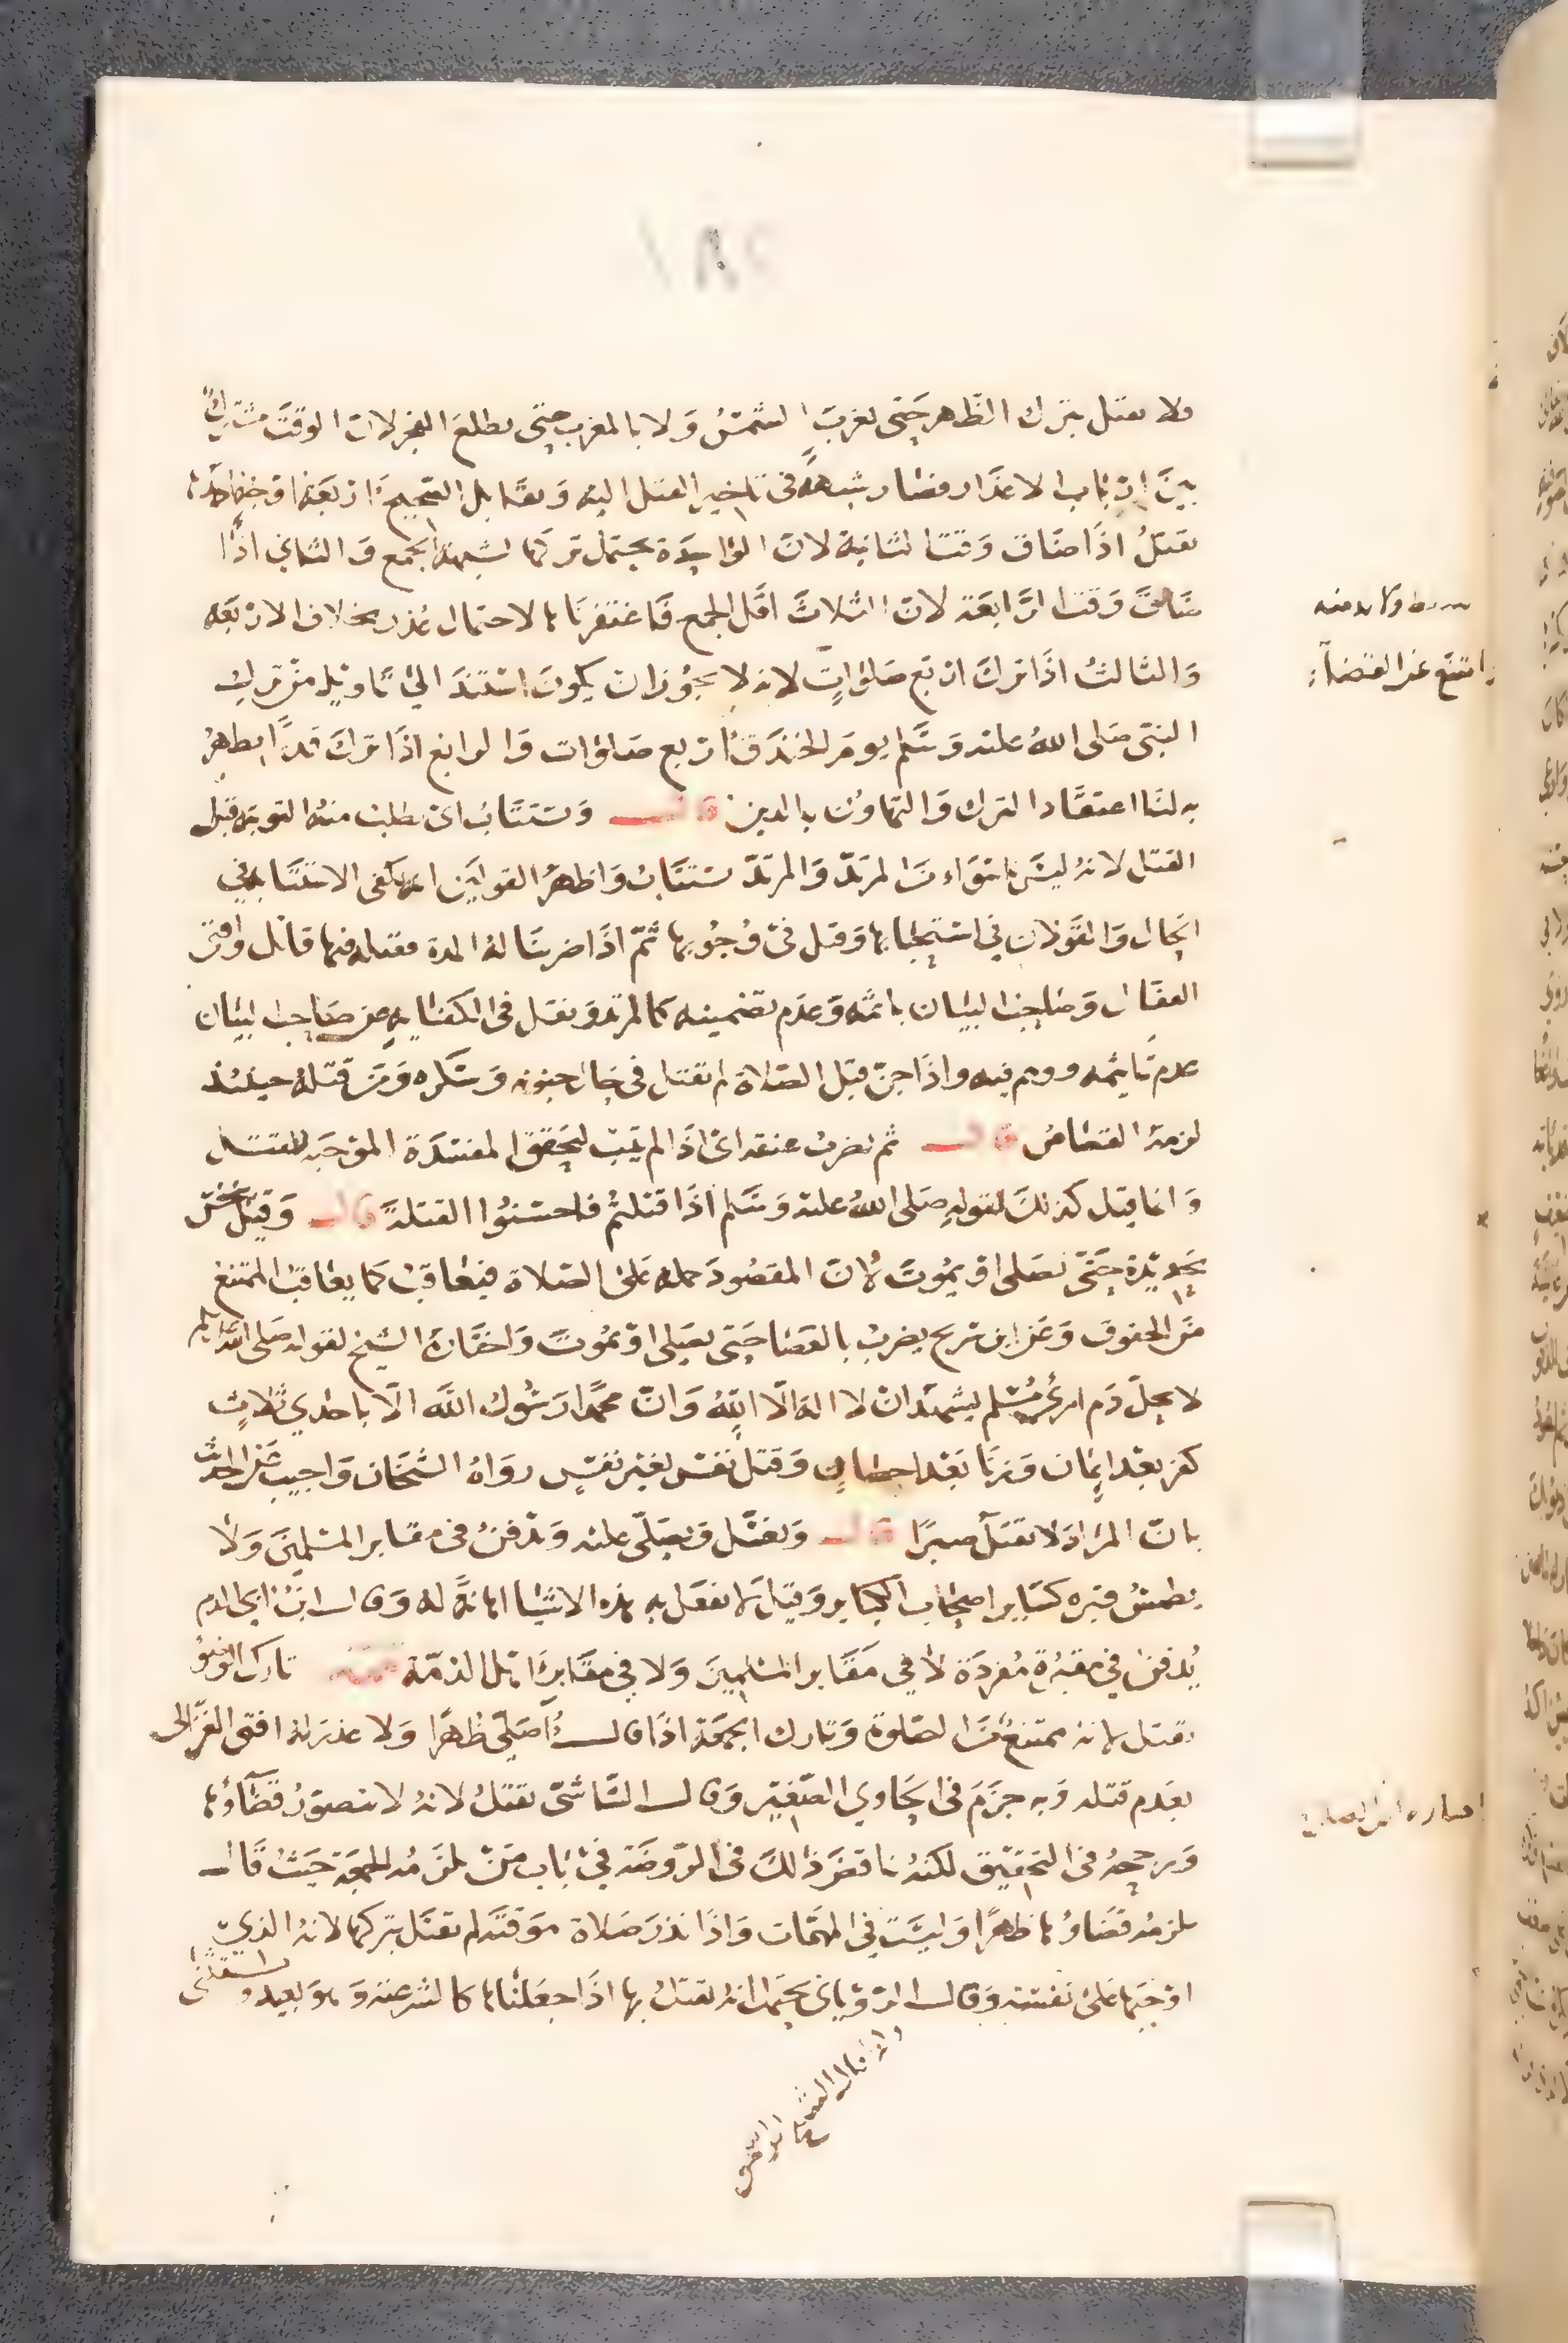 ولا يقتل بترك الظهر حتى تغرب الشمس ولا بالمغرب حتى يطلع الفجر لان الوقت مشترك
بين ارباب الاعذار فصار شبهة في تاخير القتل اليه ويقابل الصحيح اربعة اوجه احدها
يقتل اذا ضاق وقت الثانية لان الواحدة يحتمل تركها لشبهة الجمع والثاني اذا
ضاق وقت الرابعة لان الثلاث اقل الجمع فاغتفرناها لاحتمال عذر بخلاف الاربعة
والثالث اذا ترك اربع صلوات لانه لا يجوز ان يكون استند الى تاويل من ترك
النبي صلى الله عليه وسلم يوم الخندق اربع صلوات والرابع اذا ترك قدرا يظهر
به لنا اعتقاد الترك والتهاون بالدين قال ويستتاب اي يطلب منه التوبة قبل
القتل لانه ليس باسواء من المرتد والمرتد يستتاب واظهر القولين انه يكفي الاستتابة في
الحال والقولان في استحبابها وقيل في وجوبها ثم اذا ضربنا له المدة فقتله فيها قاتل وافتى
القفال وصاحب البيان باثمه وعدم تضمينه كالمرتد ونقل في الكفاية عن صاحب البيان
عدم تاثيمه ووهم فيه واذا جن قبل الصلاة لم يقتل في حال جنونه وسكره ومن قتله حينئذ
لزمه القصاص قال ثم يضرب عنقه اي اذا لم يتب لتحقق المفسدة الموجبة للقتل
وانما قتل كذلك لقوله صلى الله عليه وسلم اذا قتلتم فاحسنوا القتلة قال وقيل ينخس
بحديدة حتى يصلى او يموت لان المقصود حمله على الصلاة فيعاقب كما يعاقب الممتنع
من الحقوق وعن ابن سريج يضرب بالعصا حتى يصلى او يموت واختاره الشيخ لقوله صلى الله عليه وسلم
لا يحل دم امرئ مسلم يشهد ان لا اله الا الله وان محمدا رسول الله الا باحدي ثلاث
كفر بعد ايمان وزنا بعد احصان وقتل نفس بغير نفس رواه الشيخان واجيب عن الحديث
بان المراد لا يقتل صبرا قال ويغسل ويصلى عليه ويدفن في مقابر المسلمين ولا
يطمس قبره كساير اصحاب الكباير وقيل لا يفعل به هذه الاشيا اهانة له وقال ابن ابي الدم
يدفن في مقبرة مفردة لا في مقابر المسلمين ولا في مقابر اهل الذمة تارك الوضوء
يقتل لانه ممتنع من الصلوة وتارك الجمعة اذا قال اصلي ظهرا ولا عذر له افتى الغزالى
بعدم قتله وبه جزم في الحاوي الصغير وقال الشاشي يقتل لانه لا يتصور قضاؤها
ورجحه في التحقيق لكنه ناقض ذلك في الروضة في باب من تلزمه الجمعة حيث قال
يلزمه قضاؤها ظهرا وليست في المهمات واذا نذر صلاة موقتة لم يقتل بتركها لانه الذي
اوجبها على نفسه وقال الروياني يحتمل انه يقتل بها اذا جعلناها كالشرعية وهو بعيد
منه
امتنع عن القضا